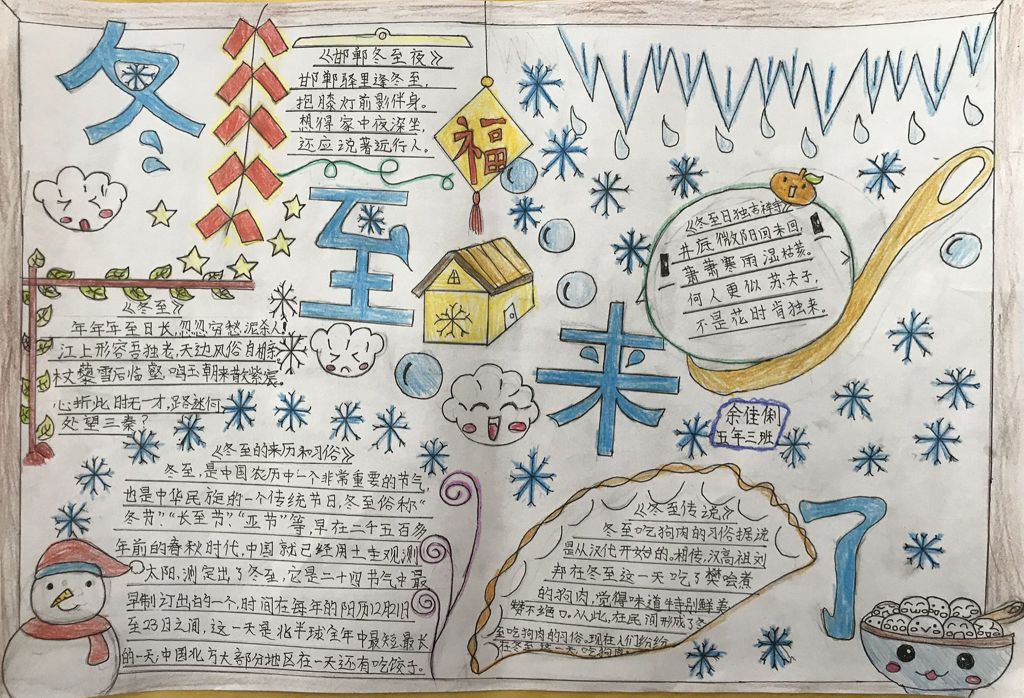 冬
至
来
了
福
《邯郸冬至夜》
邯郸驿里逢冬至,
抱膝灯前影伴身。
想得家中夜深坐,
还应说著远行人。
《冬至日独吉祥寺》
井底微阳回未回,
萧萧寒雨湿枯荄。
何人更似苏夫子,
不是花时肯独来。
《冬至》
年年至日长,忽忽穷愁泥杀人!
江上形容吾独老,天边风俗自相亲。
杖藜雪后临壑,鸣玉朝来散紫宸。
心折此时无一寸,路迷何
处望三秦?
余佳俐
五年三班
《冬至的来历和习俗》
冬至,是中国农历中一个非常重要的节气,
也是中华民族的一个传统节日,冬至俗称“
冬节”“长至节”“亚节”等,早在二千五百多
年前的春秋时代,中国就已经用土圭观测
太阳,测定出了冬至,它是二十四节气中最
早制订出的一个,时间在每年的阳历12月21日
至23日之间,这一天是北半球全年中最短、最长
的一天;中国北方大部分地区在一天还有吃饺子。
《冬至传说》
冬至吃狗肉的习俗据说
是从汉代开始的。相传,汉高祖刘
邦在冬至这一天吃了樊哙煮
的狗肉,觉得味道特别鲜美
赞不绝口。从此,在民间形成了冬
至吃狗肉的习俗。现在人们纷纷
在冬至这一天,吃狗肉